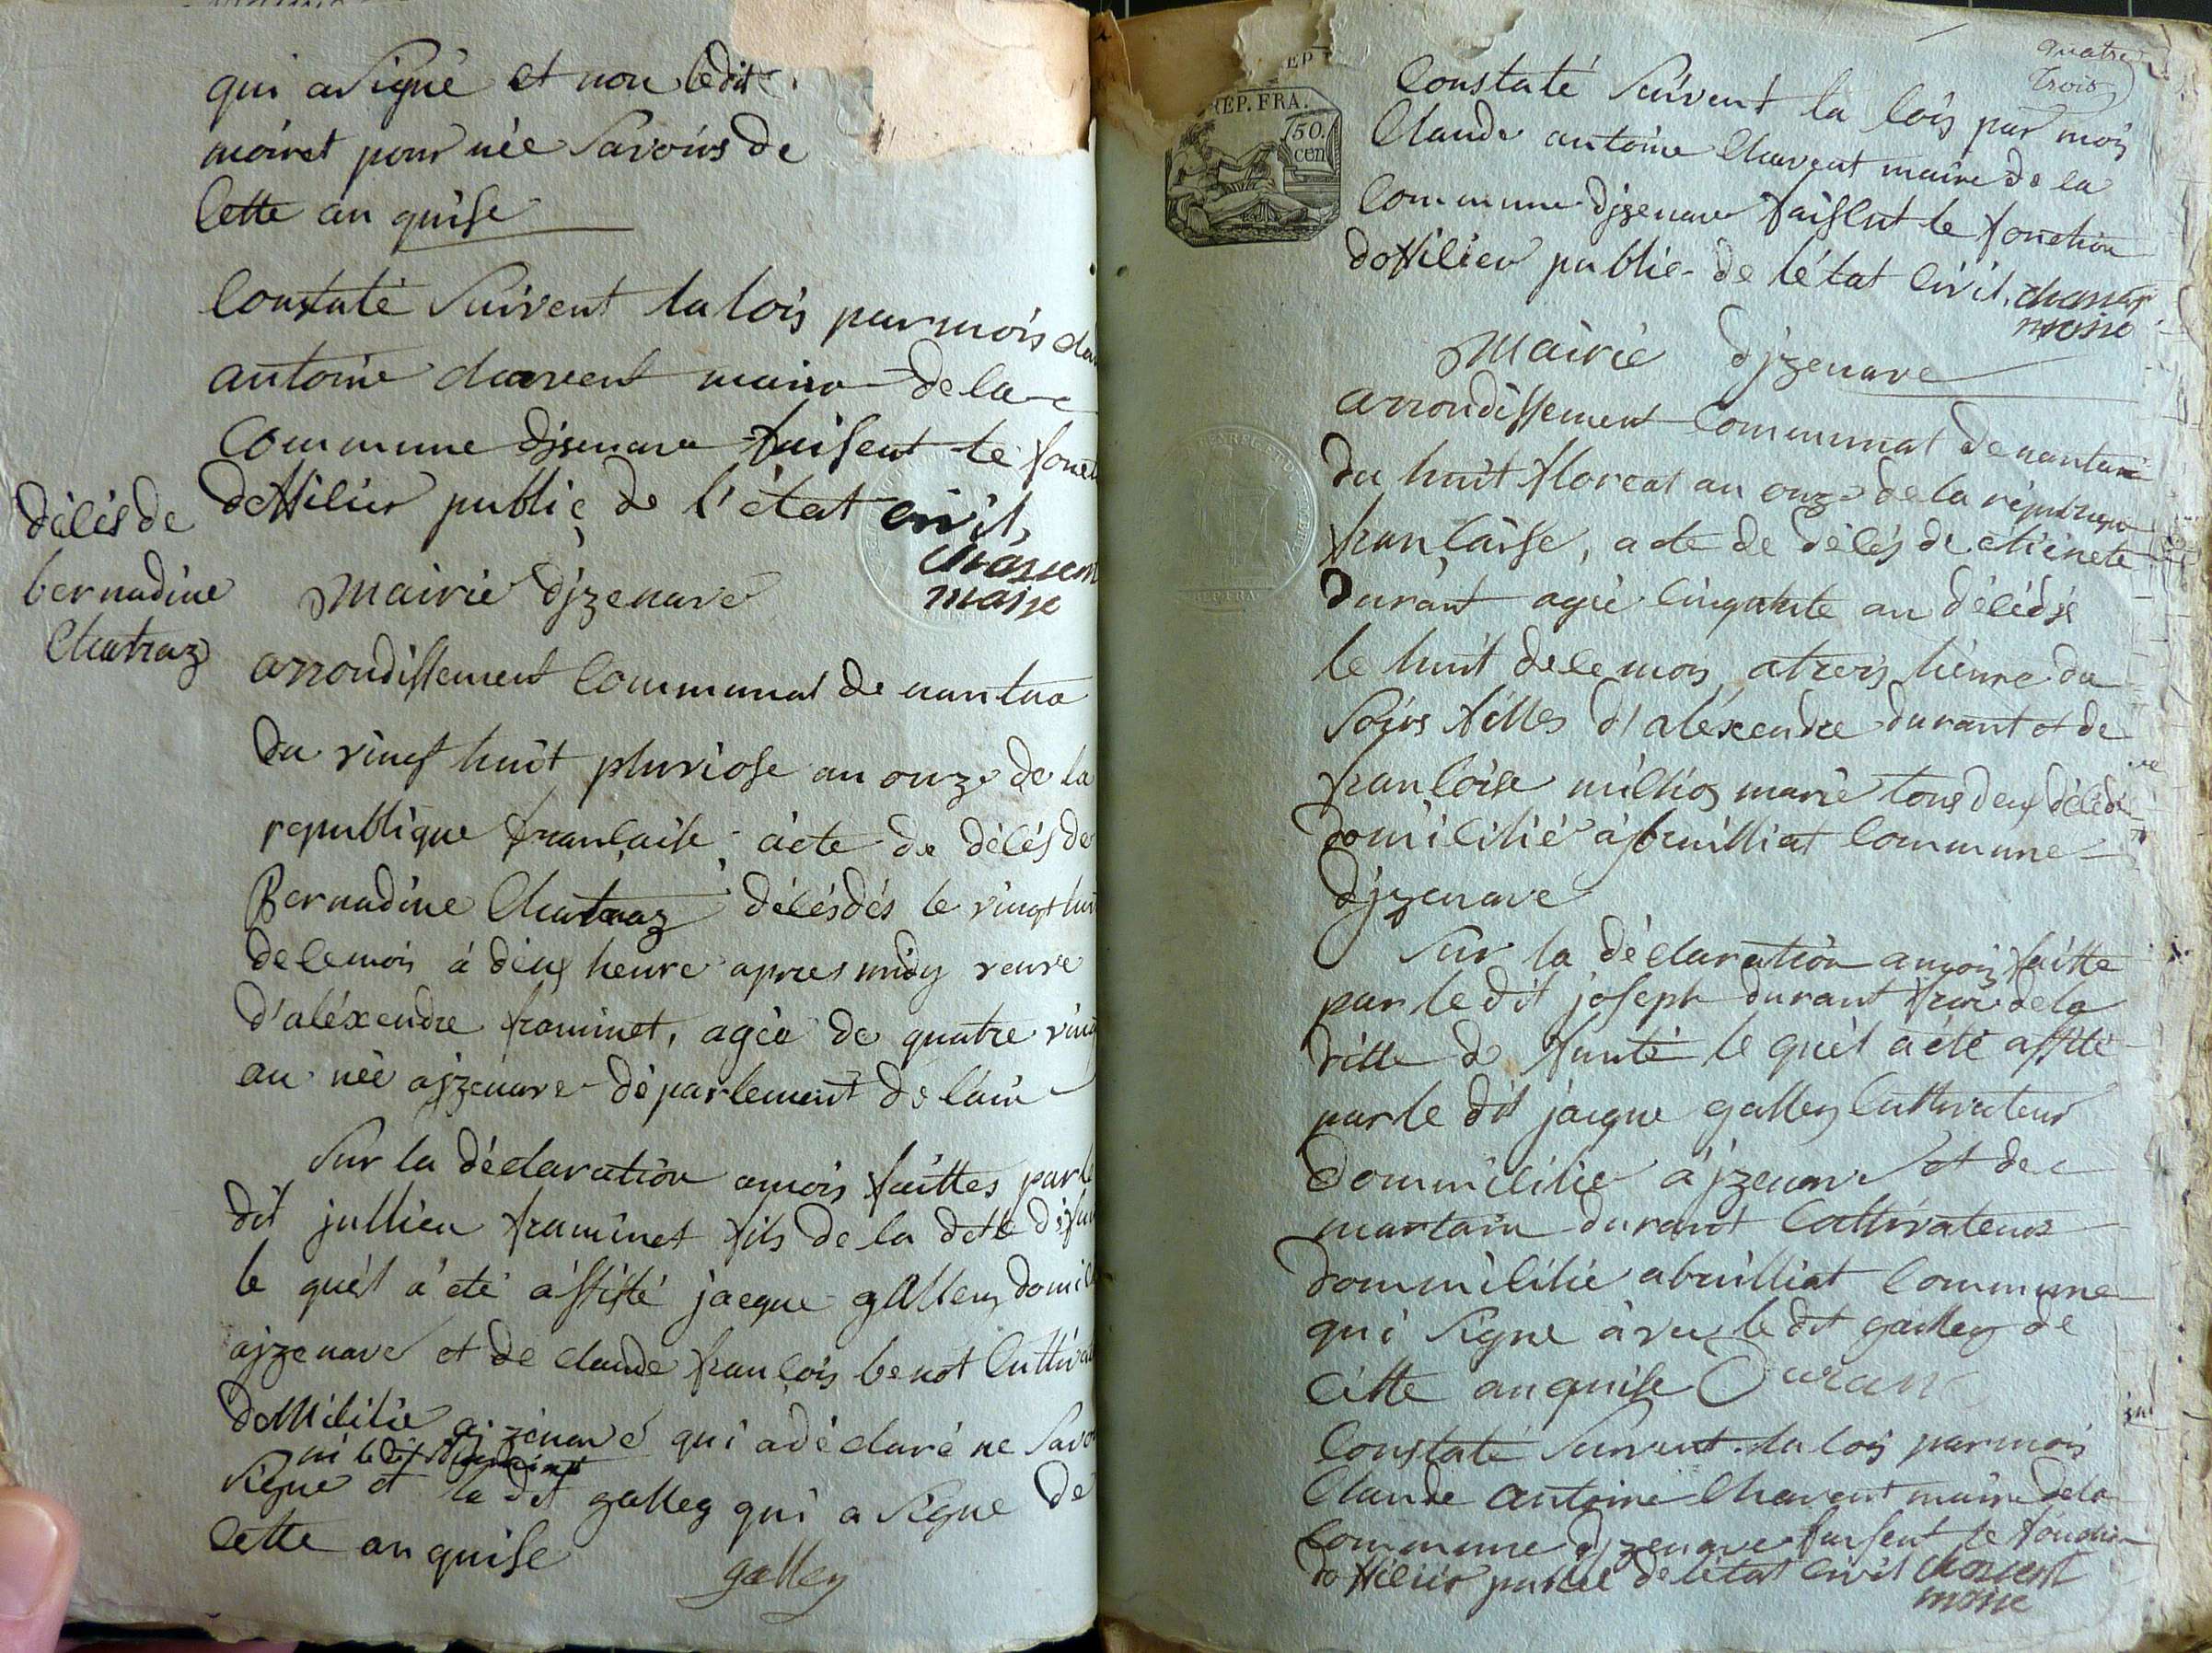 qui a signé et non ledit
moiret pour née savoirs de
cette an quise
constaté suivent la lois par mois
antoine charvent maire de la
commune djzenave faisent le fonct
dofficier public de l'état civil,
charvent
maire
décès de
bernadine
chatraz
mairie djzenave
arrondissement communal de nantua
du vingt huit pluviose an onze de la
republique française, acte de décés de
Bernadine Chatraz décésdés le vingt huit
de ce mois à deux heure apres midy veuve
d'aléxendre framinet, agée de quatre vingt
an née ajzenave département de l'ain
Sur la déclaration amois faittes par le
dit jullien framinet fils de la dette
le quél a été assisté jacque galley
ajzenave et de claude françois benot
ajzenave qui a déclaré ne
ni ledit
signe et le dit galley qui a signe de
cette an quise
galley
quatre
trois
REP. FRA.
50.
cen
Constaté suivent la lois par mois
Claude antoine Charvent maire de la
commune djzenave faisent le fonction
dofficier public de l'état civil, charvent
maire
mairie djzenave
arrondissement communal de nantua
du huit floreal an onze de la république
française, acte de décés de étienete
durant agée cinquante an décédé
le huit de ce mois, a trois heure du
soirs filles d'aléxendre durant et de
françoise millioz marie tous deux décédé
domicilié à bruilliat commune
djzenave
Sur la déclaration amois faitte
par le dit joseph durant frere de la
ditte le quél a été assité
par le dit jacque galley cultivateur
domicilié a jzenave et de
martain durant cultivateur
dommicilié abruilliat commune
qui signe avec le dit galley de
cette an quise Duran
Constaté suivent la lois par mois
Claude antoine Charvent maire de la
commune djzenave faisent le fonction
dofficier public de létat civil charvent
maire